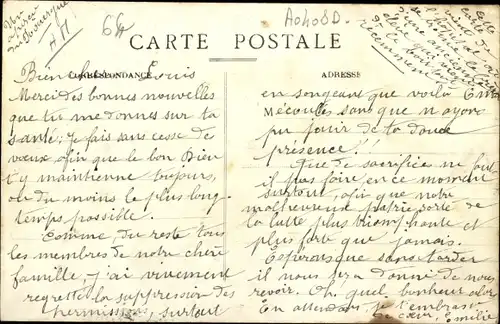 64
A0408D.
CARTE POSTALE
CORRESPONDANCE
ADRESSE
Bien cher Louis
Merci des bonnes nouvelles
que tu me donnes sur ta
santé; je fais sans cesse de
vœux afin que le bon Dieu
t'y maintienne toujours,
ou du moins le plus long-
temps possible.
Comme du reste tous
les membres de notre chère
famille, j'ai vivement
regretté la suppression des
permissions, surtout
en songeant que voilà
Mécoulés sans que n'ayons
pu jouir de ta douce
présence!!
Que de sacrifice ne faut
il pas faire en ce moment
surtout, afin que notre
malheureuse patrie sorte de
la lutte plus triomphante et
plus forte que jamais.
Espérons que sans tarder
il nous sera donné de nous
revoir. Oh, quel bonheur alors
En attendant, je t'embrasse
de cœur, Emilie